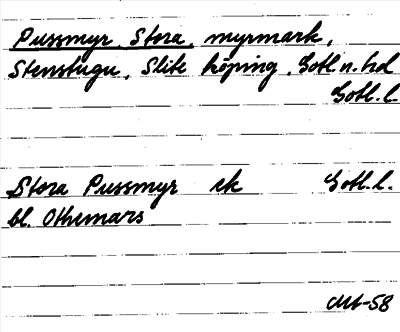 Pussmyr, Stora, myrmark,
Stenstugu, Slite köping, Gotl.n.hd
Gotl.l.
Stora Pussmyr ek Gotl.l.
bl. Othemars
-58